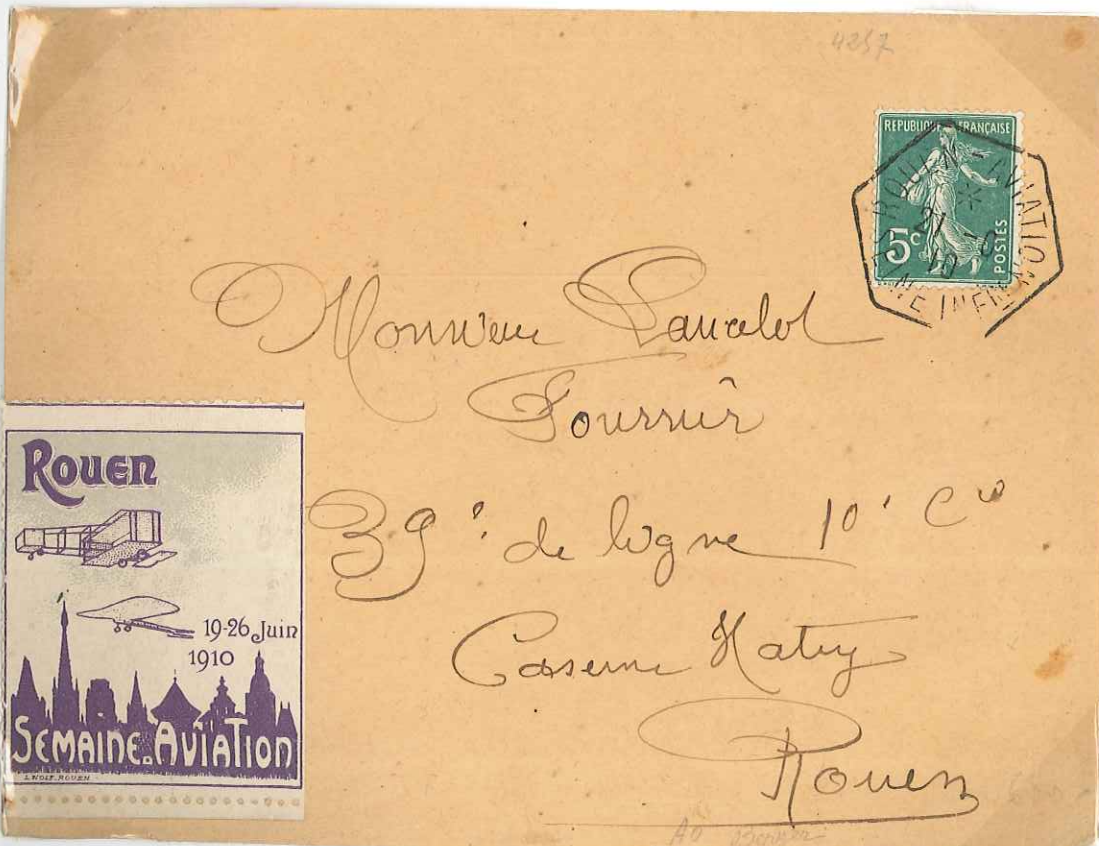 4257
REPUBLIQUE FRANÇAISE
5c
POSTES
ROUEN - AVIATION
21 -6
10
SEINE INFRE
Monsieur Lancelot
Fourrier
39e de ligne 10e Cie
Caserne Hatry
Rouen
Rouen
19-26 Juin
1910
SEMAINE.AVIATION
L.WOLF.ROUEN